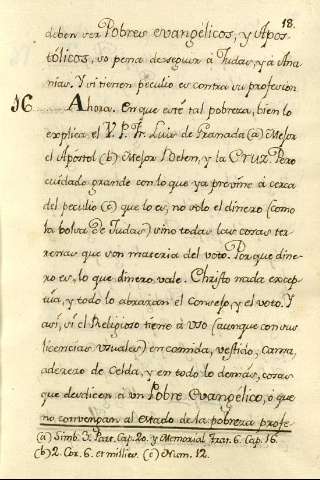 18.
deben ser Pobres evangelicos, y Apos-
tólicos, so pena de seguir á Judas, y á Ana
nias. Y si tienen peculio es contra su profesion
16 Ahora. En que esté tal pobreza, bien lo
explica el V. P. Fr. Luis de Granada (a) Mejor
el Apostol (b) Mejor Belen, y la CRUZ. Pero
cuidado grande con lo que ya previne á cerca
del peculio (c) que lo es, no solo el dinero (como
la bolsa de Judas) sino todas las cosas ter-
renas que son materia del voto. Porque dine-
ro es, lo que dinero vale. Christo nada excep-
túa, y todo lo abrazan el consejo, y el voto. Y
asi, si el Religioso tiene á uso (aunque con sus
licencias usuales) en comida, vestido, cama,
aderezo de Celda, y en todo lo demás, cosas
que desdicen á un Pobre Evangélico, ó que
no convengan al estado de la pobreza profe-
(a) Simb. 3. Part. Cap. 20. y Memorial Trat. 6. Cap. 16.
(b) 2. Cor. 6. et millies. (c) Num. 12.